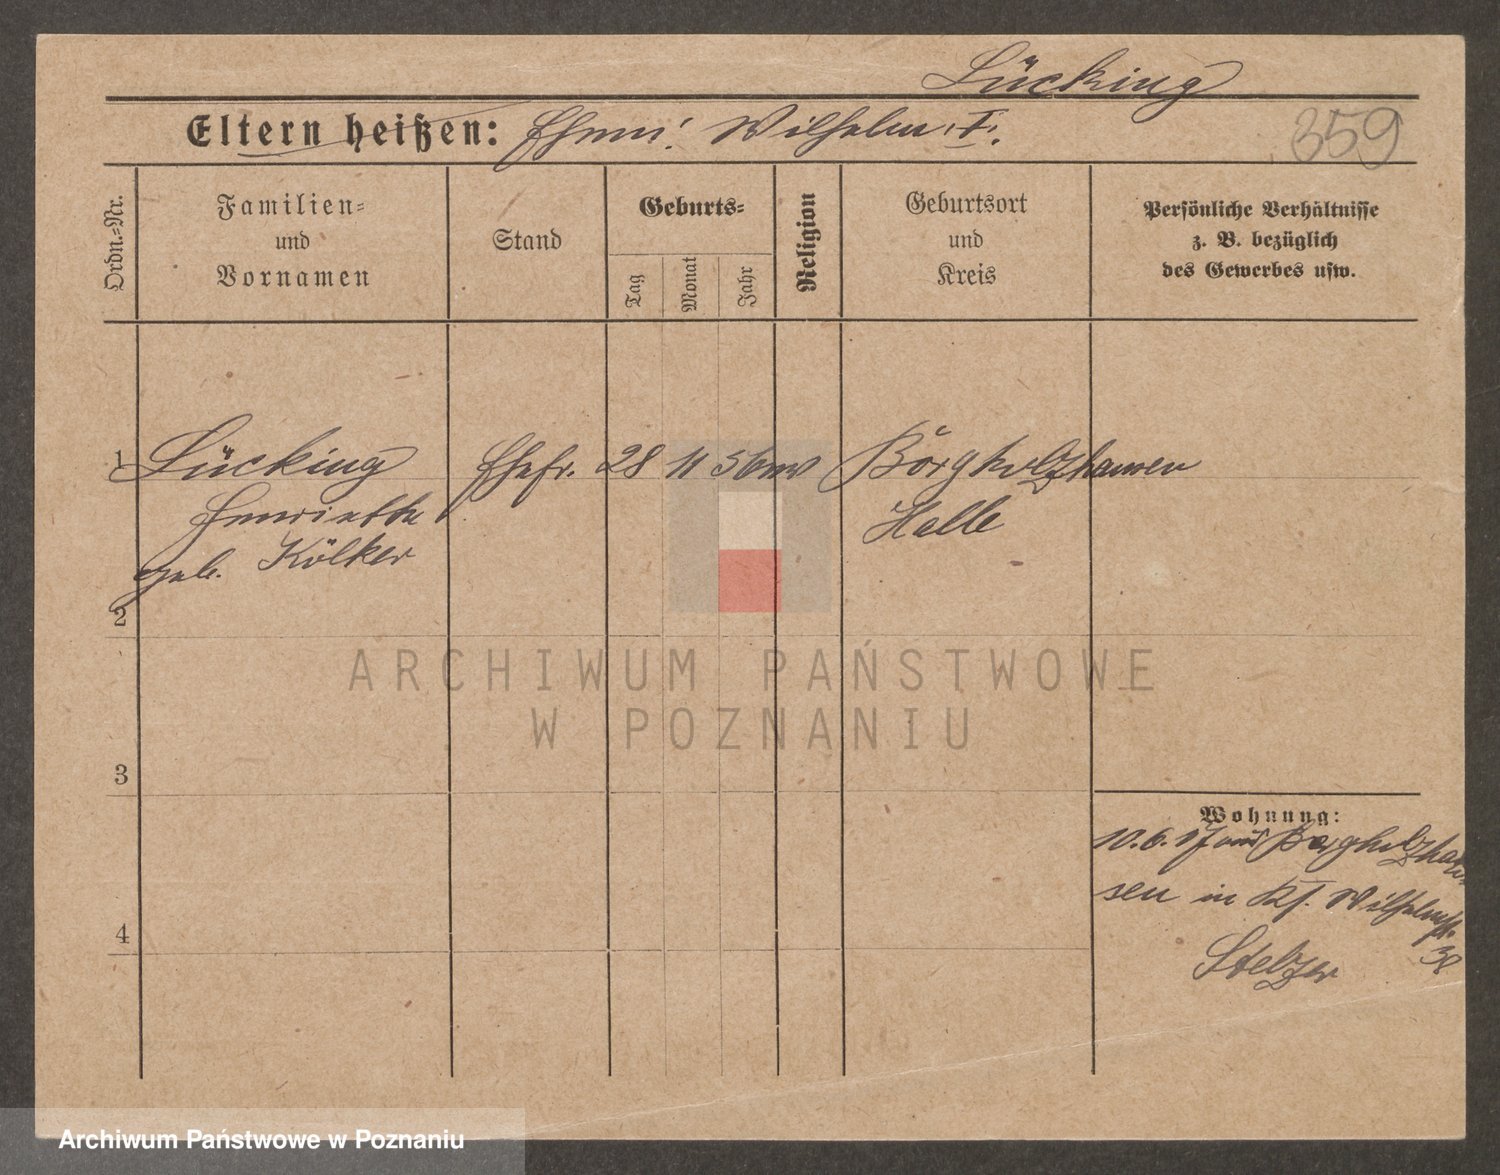 Lücking
Eltern heißen: Ehem: Wilhelm I.
359
Ordn.-Nr.
Familien-
und
Vornamen
Stand
Geburts-
Tag
Monat
Jahr
Religion
Geburtsort
und
Kreis
Persönliche Verhältnisse
z. B. bezüglich
des Gewerbes usw.
1 Lücking Ehefr. 28 11 56 ev Borgholzhausen
Henriette Halle
geb. Kölker
2
ARCHIWUM PAŃSTWOWE
W POZNANIU
3
Wohnung:
10.6.17 aus Borgholzhau
sen in Wilhelmst.
38
4
Stelzer
Archiwum Państwowe w Poznaniu